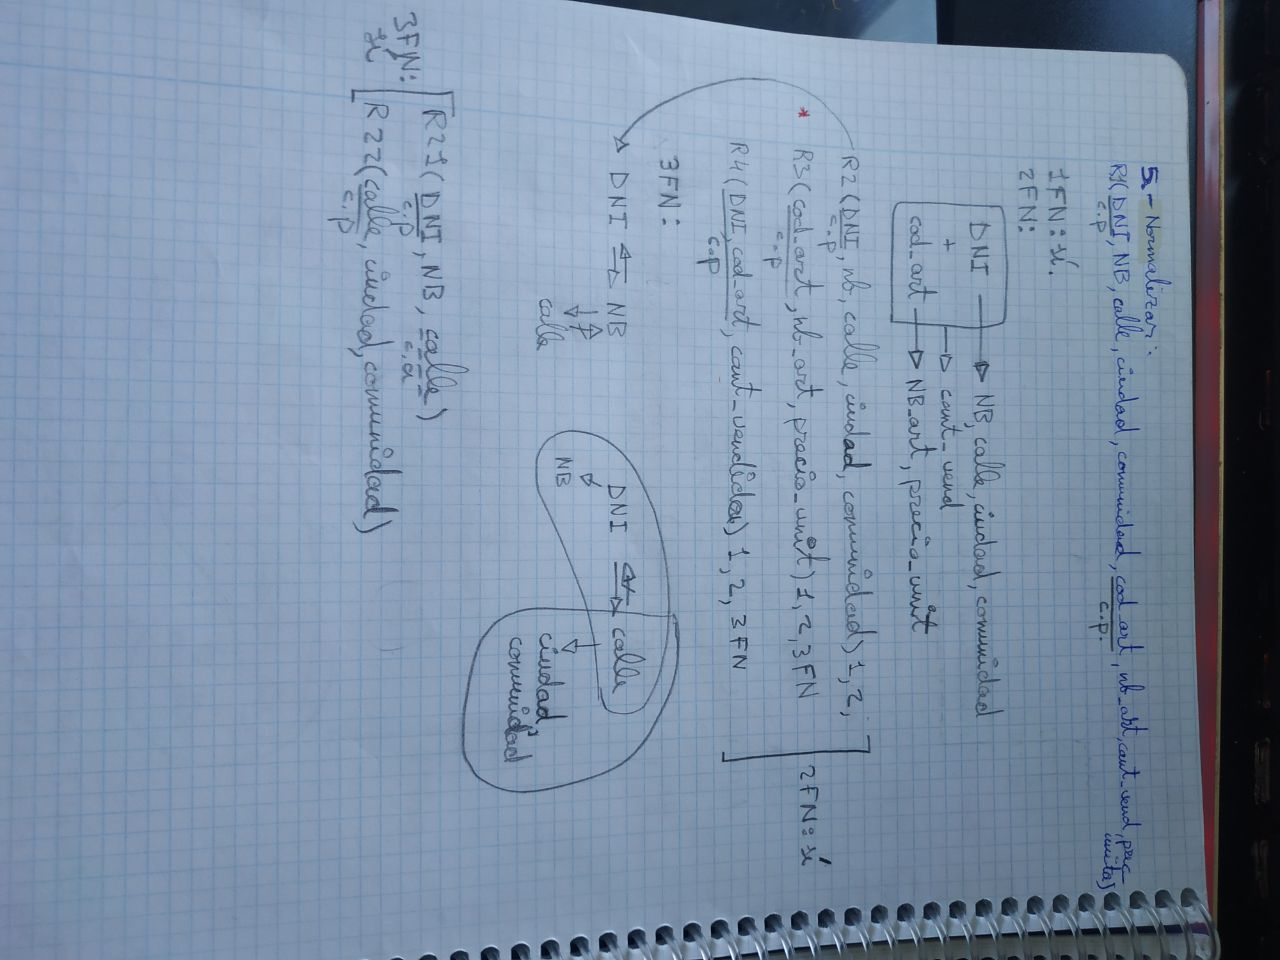 5.- Normalizar:
R1(DNI, NB, calle, ciudad, comunidad, cod_art, nb_art, cant_vend, prec
unita)
c.p c.p.
1FN: sí.
2FN:
DNI → NB, calle, ciudad, comunidad
+ → cant_vend
cod_art → NB_art, precio_unit
R2(DNI, nb, calle, ciudad, comunidad) 1, 2,
c.p
* R3(cod_art, nb_art, precio_unit) 1, 2, 3FN 2FN: sí
c.p
R4(DNI, cod_art, cant_vendidos) 1, 2, 3FN
c.p
3FN:
DNI ⇄ NB DNI ⇄ calle
NB
calle ciudad,
comunidad
3FN: R21(DNI, NB, calle)
c.p c.a
sí R22(calle, ciudad, comunidad)
c.p